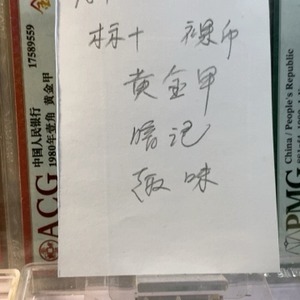 标十 裸印
黄金甲
暗记
趣味
17589559
ACG
中国人民银行
1980年壹角 黄金甲
PMG
China / People's Republic